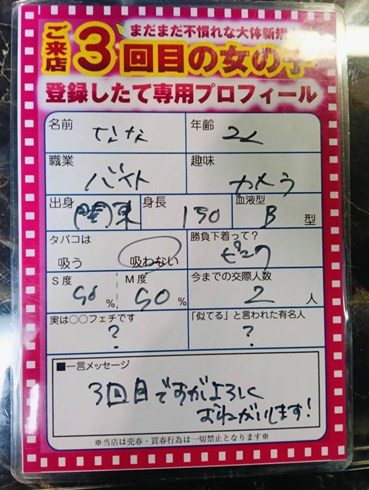 まだまだ不慣れな大体新規
ご来店3回目の女の子
登録したて専用プロフィール
名前 なな 年齢 22
職業 バイト 趣味 カメラ
出身 関東 身長 150 血液型 B 型
タバコは 吸う 吸わない 勝負下着って? ピンク
S度 50 % M度 50 % 今までの交際人数 2 人
実は○○フェチです ? 「似てる」と言われた有名人 ?
■一言メッセージ
3回目ですがよろしく
おねがいします!
※当店は売春・買春行為は一切禁止となります※